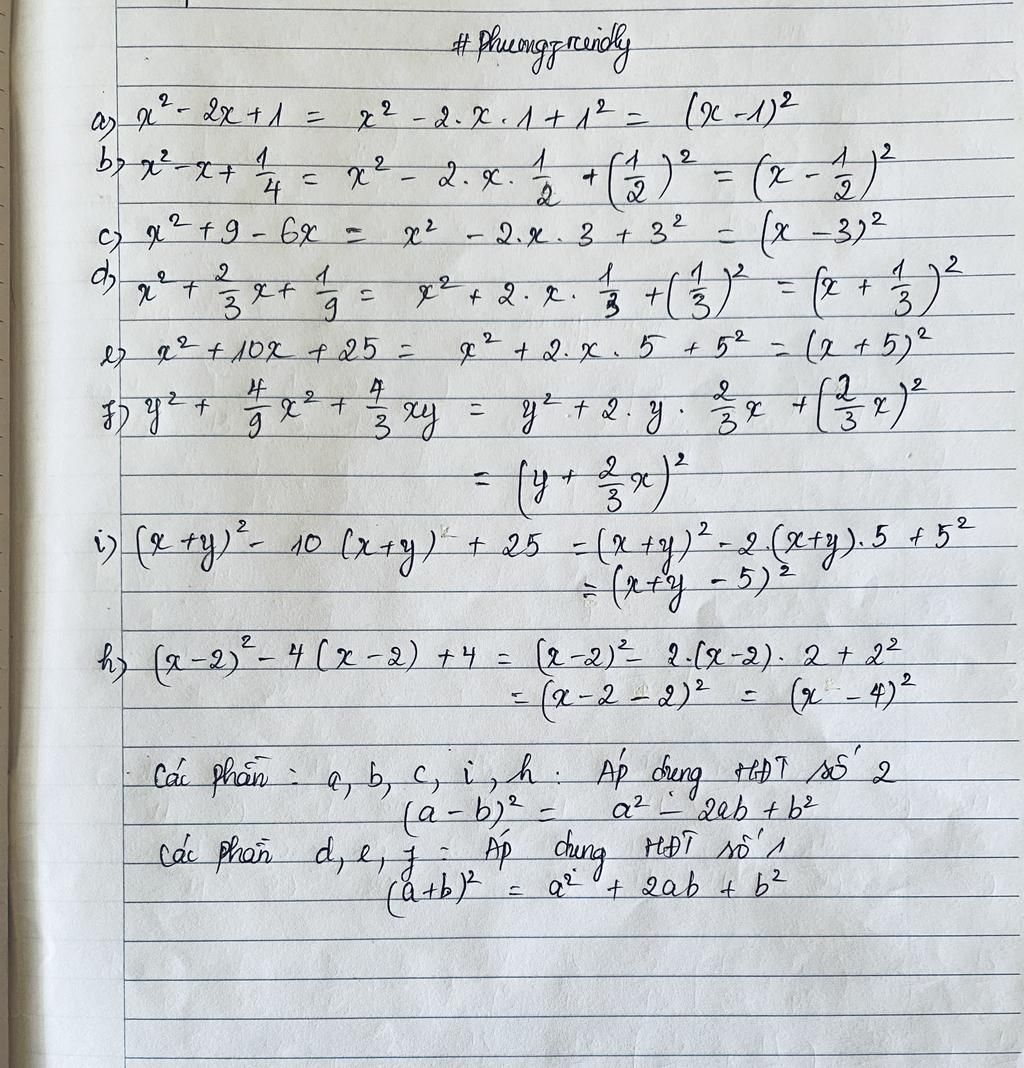 # Phuongfriendly
a) x² - 2x + 1 = x² - 2.x.1 + 1² = (x - 1)²
b) x² - x + 1/4 = x² - 2.x.1/2 + (1/2)² = (x - 1/2)²
c) x² + 9 - 6x = x² - 2.x.3 + 3² = (x - 3)²
d) x² + 2/3 x + 1/9 = x² + 2.x.1/3 + (1/3)² = (x + 1/3)²
e) x² + 10x + 25 = x² + 2.x.5 + 5² = (x + 5)²
f) y² + 4/9 x² + 4/3 xy = y² + 2.y.2/3 x + (2/3 x)²
= (y + 2/3 x)²
i) (x + y)² - 10 (x + y) + 25 = (x + y)² - 2.(x + y).5 + 5²
= (x + y - 5)²
h) (x - 2)² - 4 (x - 2) + 4 = (x - 2)² - 2.(x - 2).2 + 2²
= (x - 2 - 2)² = (x - 4)²
Các phần : a, b, c, i, h : Áp dụng HĐT số 2
(a - b)² = a² - 2ab + b²
Các phần d, e, f : Áp dụng HĐT số 1
(a + b)² = a² + 2ab + b²